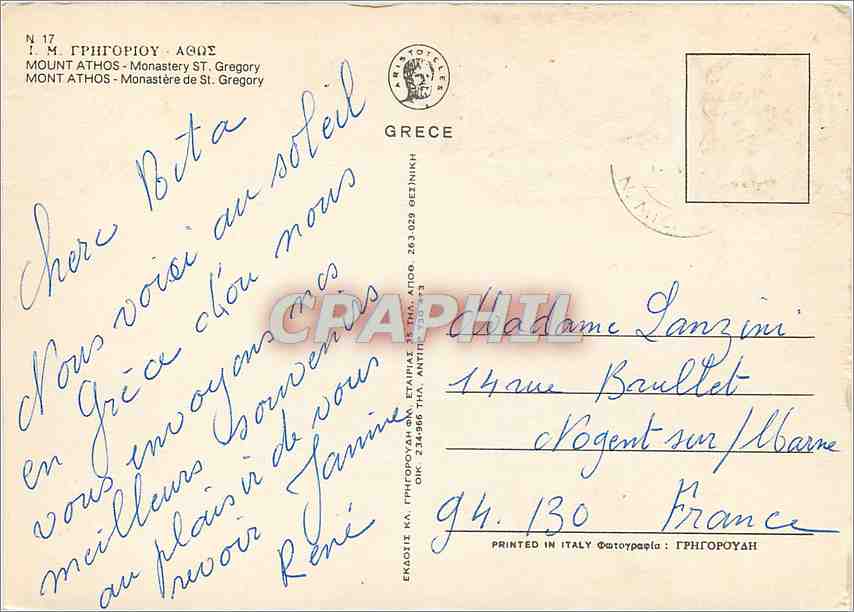 N 17
Ι. Μ. ΓΡΗΓΟΡΙΟΥ - ΑΘΩΣ
MOUNT ATHOS - Monastery ST. Gregory
MONT ATHOS - Monastère de St. Gregory
ARISTOTELES
GRECE
Chere Bita
Nous voici au soleil
en Grèce d'ou nous
vous envoyons nos
meilleurs souvenirs
au plaisir de vous
revoir Janine
René
ΕΚΔΟΣΙΣ ΚΛ. ΓΡΗΓΟΡΟΥΔΗ ΦΙΛ. ΕΤΑΙΡΙΑΣ 35 ΤΗΛ. ΑΠΟΘ. 263-029 ΘΕΣ)ΝΙΚΗ
ΟΙΚ. 234-966 ΤΗΛ. ΑΝΤΙΠΡ.
CRAPHIL
Madame Lanzini
14 rue Brullet
Nogent sur/Marne
94. 130 France
PRINTED IN ITALY Φωτογραφία : ΓΡΗΓΟΡΟΥΔΗ